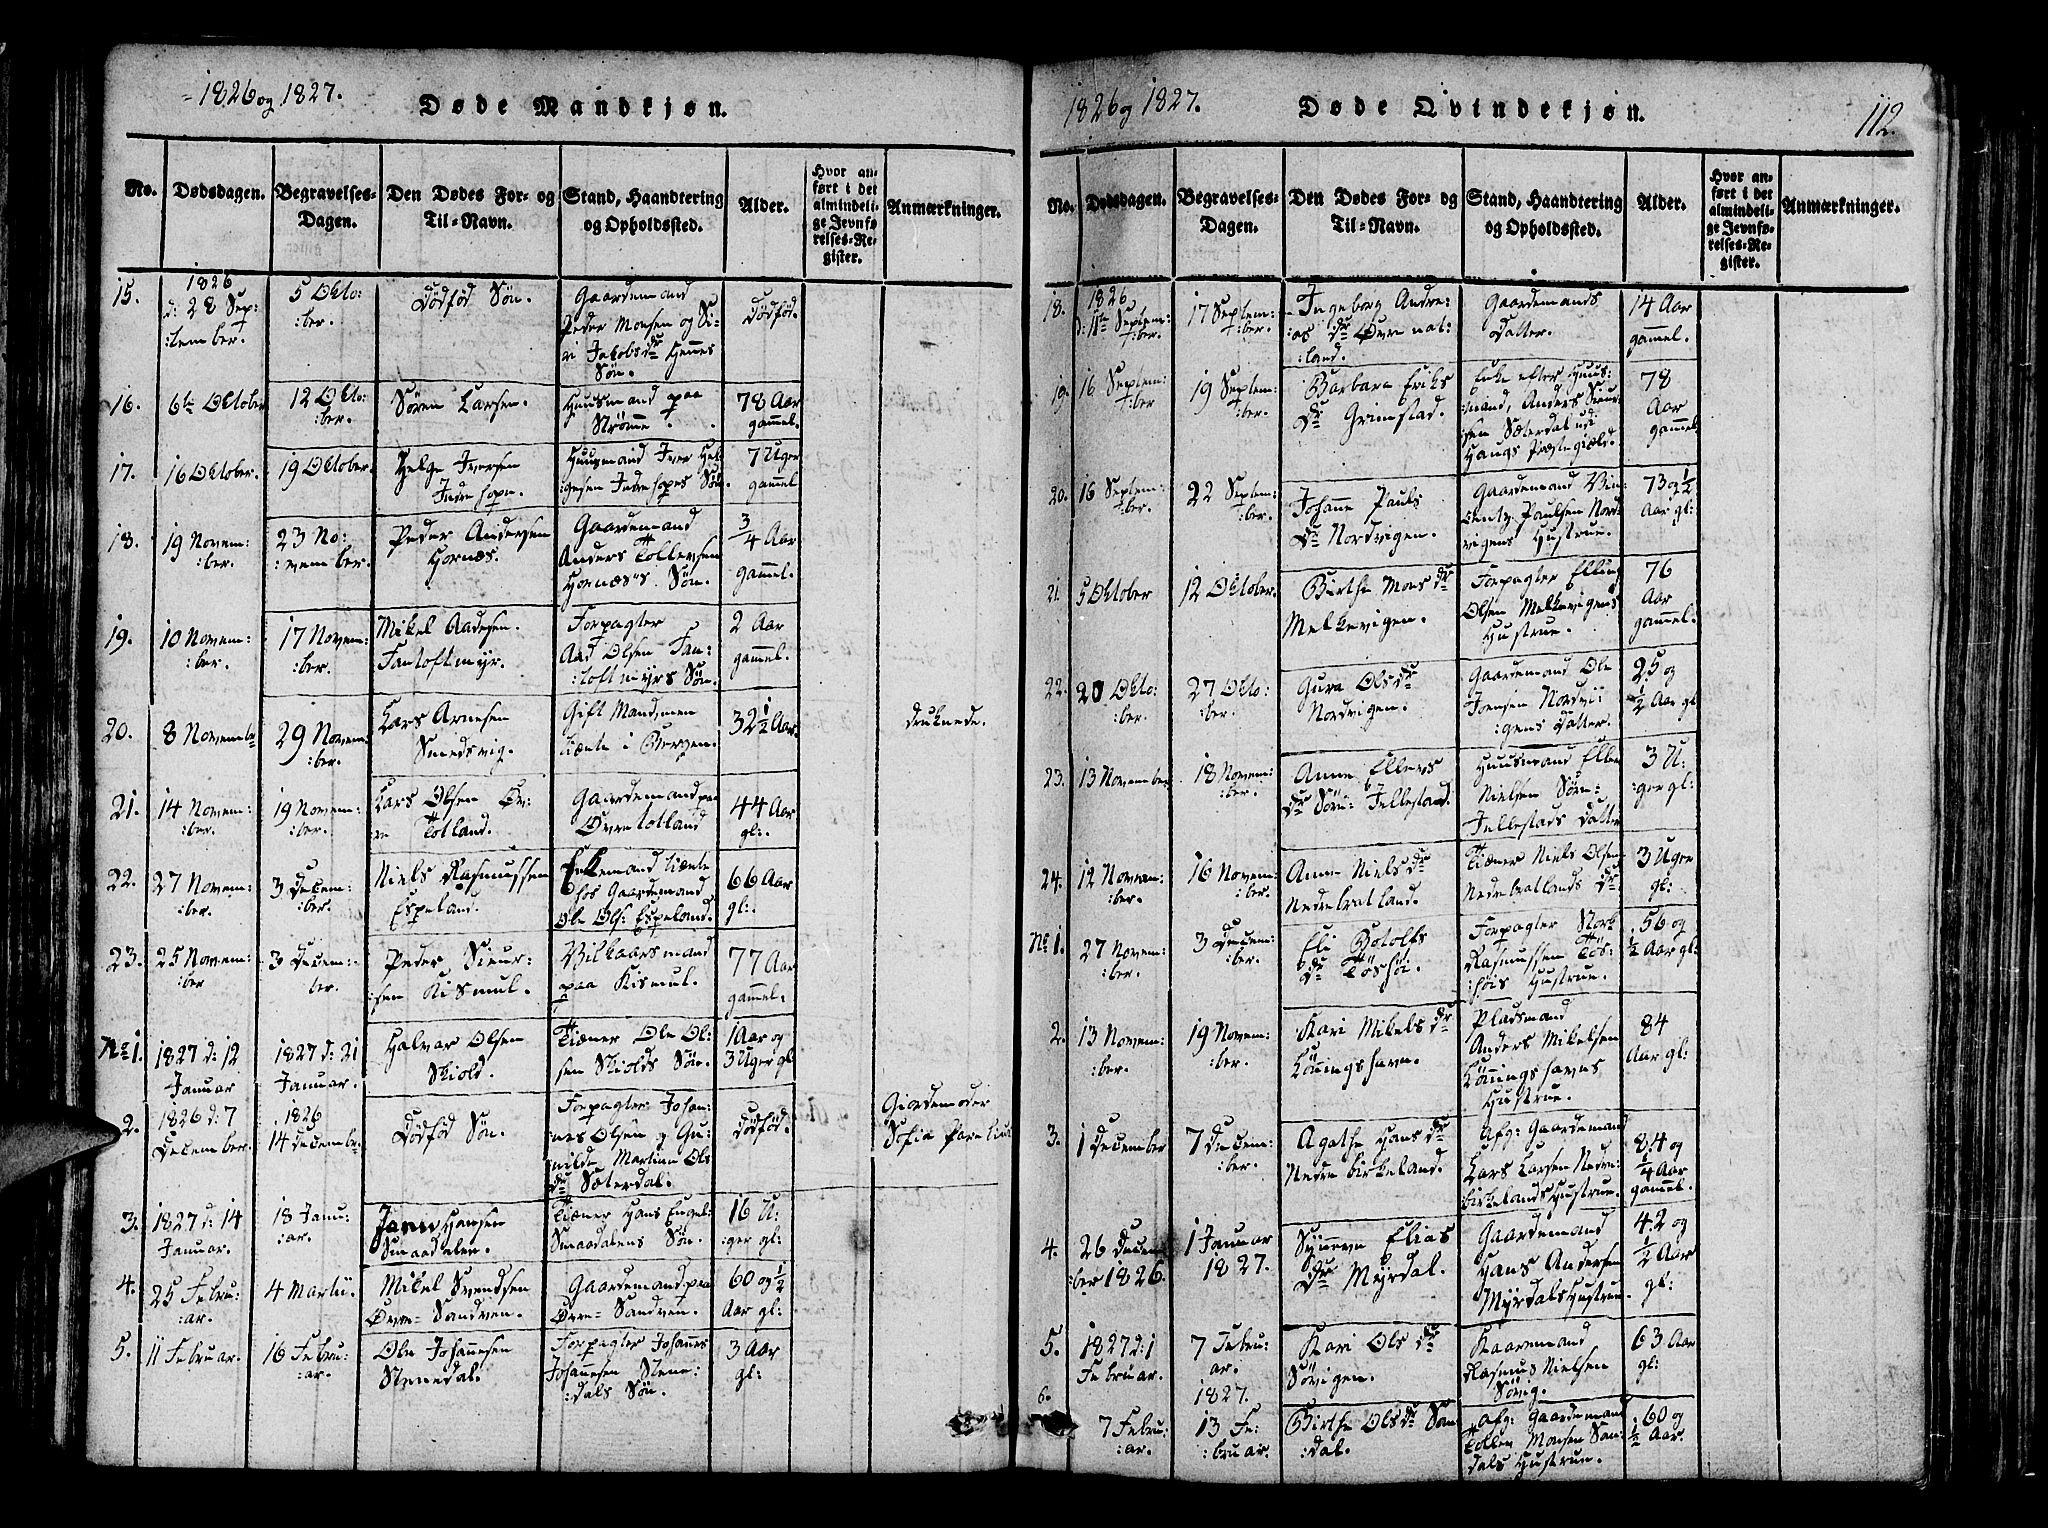 1826 og 1827.
Døde Mandkjøn.
No.
Dødsdagen.
Begravelses-
Dagen.
Den Dødes For- og
Til-Navn.
Stand, Haandtering
og Opholdssted.
Alder.
Hvor an-
ført i det
almindeli-
ge Jevnfø-
relses-Re-
gister.
Anmærkninger.
15.
1826
d: 28 Sep:
:tember.
5 Octo:
:ber.
Dödfød Sön.
Gaardemand
Peder Monsen og Si-
ri Jakobsdr
Sön.
Dödföd.
16.
6te October
12 Octo:
:ber.
Sören Larsen.
Huusmand paa
Strömme.
78 Aar
gammel.
17.
16 October.
19 October.
Helge Iversen
Indrehope.
Huusmand Iver Hel-
gesen Indrehopes Sön.
7 Uger
gammel
18.
19 Novem:
:ber.
23 No:
:vember.
Peder Andersen
Hornæs.
Gaardemand
Anders Tollevsen
Hornæs's Sön.
3/4 Aar
gammel.
19.
10 Novem:
:ber.
17 Novem:
:ber.
Mikel Aadesen.
Fantoftmyr.
Forpagter
Aad Olsen Fan:
:toftmyrs Sön.
2 Aar
gammel
20.
8 Novembr
29 Novem:
:ber.
Lars Arnesen
Smedsvig.
Gift Mand, men
tiente i Bergen.
32 1/2 Aar.
druknede.
21.
14 Novem:
:ber.
19 Novem:
:ber.
Lars Olsen Öv:
re Totland.
Gaardemand paa
Övretotland
44 Aar
gl:.
22.
27 Novem:
:ber.
3 Decem:
:ber.
Niels Rasmussen
Espeland.
Enkemand tiente
hos Gaardemand
Ole Ols: Espeland.
66 Aar
gl:.
23.
25 Novem:
:ber
3 Decem:
ber.
Peder Sieur:
:sen Kismul.
Vilkaarsmand
paa Kismul.
77 Aar
gammel.
No 1.
1827 d: 12
Januar
1827 d: 21
Januar.
Halvar Olsen
Skiold.
Tiener Ole Ol:
sen Skiolds Sön.
1 Aar og
3 Uger gl
2.
1826 d: 7
December.
1826
14 Decembr
Dödföd Sön.
Forpagter Johan:
nes Olsen og Gu:
nilde Martine Ols
dr Sæterdal.
Dödföd.
Giordemoder
Sofia
3.
1827 d: 14
Januar.
18 Janu:
:ar.
Hansen
Smaadalen.
Tiener Hans Engel:
Smaadalens Sön.
16 U:
:ger gl:
4.
25 Febru:
:ar.
4 Martii.
Mikel Svendsen
Övre- Sandven.
Gaardemand paa
Övre- Sandven.
60 og 1/2
Aar gl:
5.
11 Februar.
16 Febru:
:ar.
Ole Johannesen
Stenedal.
Forpagter Johannes
Johannesen Stene:
:dals Sön.
3 Aar
gl:
1826 og 1827.
Døde Qvindekjøn.
112.
No.
Dødsdagen.
Begravelses-
Dagen.
Den Dødes For- og
Til-Navn.
Stand, Haandtering
og Opholdssted.
Alder.
Hvor an-
ført i det
almindeli-
ge Jevnfø-
relses-Re-
gister.
Anmærkninger.
18.
1826
d: 11te Septem:
:ber.
17 Septem:
:ber.
Ingeborg Andre:
:as dr Övrenat:
:land.
Gaardemands
Datter.
14 Aar
gammel.
19.
16 Septem:
:ber
19 Septem:
:ber.
Barbara Eriks
dr Grimstad.
Enke efter Huus:
:mand, Anders Sieur:
:sen Sæterdal udi
Hougs Præstegield.
78
Aar
gammel
20.
16 Septem:
:ber.
22 Septem:
:ber.
Johanne Pauls
dr Nordvigen.
Gaardemand Vin-
centz Paulsen Nord:
vigens Hustrue.
73 og 1/2
Aar gl:
21.
5 October
12 October.
Birthe Mons dr
Melkevigen.
Forpagter Elling
Olsen Melkevigens
Hustrue.
76
Aar
gammel.
22.
20 Octo:
:ber.
27 Octo:
:ber.
Guro Ols dr
Nordvigen.
Gaardemand Ole
Jonsen Nordvi:
:gens Datter.
25 og
1/2 Aar gl
23.
13 November
18 Novem:
:ber.
Anne Ellens
dr Sörn: Fellestad.
Huusmand Ellen
Nielsen Sörn:
Fellestads Datter
3 U:
:ger gl:
24.
12 Novem:
:ber.
16 Novem:
:ber.
Anne Niels dr
Nedrebratland.
Tiener Niels Olsen
Nedrebratlands dr
3 Uger
gl:
No 1.
27 Novem:
:ber.
3 Decem:
:ber.
Eli Botolfs
dr Töshöi.
Forpagter
Rasmussen Tös:
:höis Hustrue.
56 og
1/2 Aar gl:
2.
13 Novem:
:ber.
19 Novem:
:ber.
Kari Mikels dr
Könningshavn.
Pladsmand
Anders Mikelsen
Könningshavns
Hustrue.
84
Aar gl:
3.
1 December
7 Decem:
:ber.
Agathe Hans dr
Nedrebirkeland.
Afg: Gaardemand
Lars Larsen Nedre-
birkelands Hustrue.
84 og
1/4 Aar
gammel.
4.
26 Decem
:ber 1826.
1 Januar
1827.
Synneve Elias
dr Myrdal.
Gaardemand
Hans Andersen
Myrdals Hustrue.
42 og
1/2 Aar
gl:
5.
1827 d: 1
Februar.
7 Febru:
ar.
1827.
Kari Ols dr
Sövigen.
Kaaremand
Rasmus Nielsen
Sövig.
63 Aar
gl:
6.
7 Febru:
:ar.
13 Fe:
:bruar.
Birthe Ols dr San
:dal.
Afg: Gaardemand
Tollen Monsen San:
dals Hustrue.
60 og
1/2 Aar.